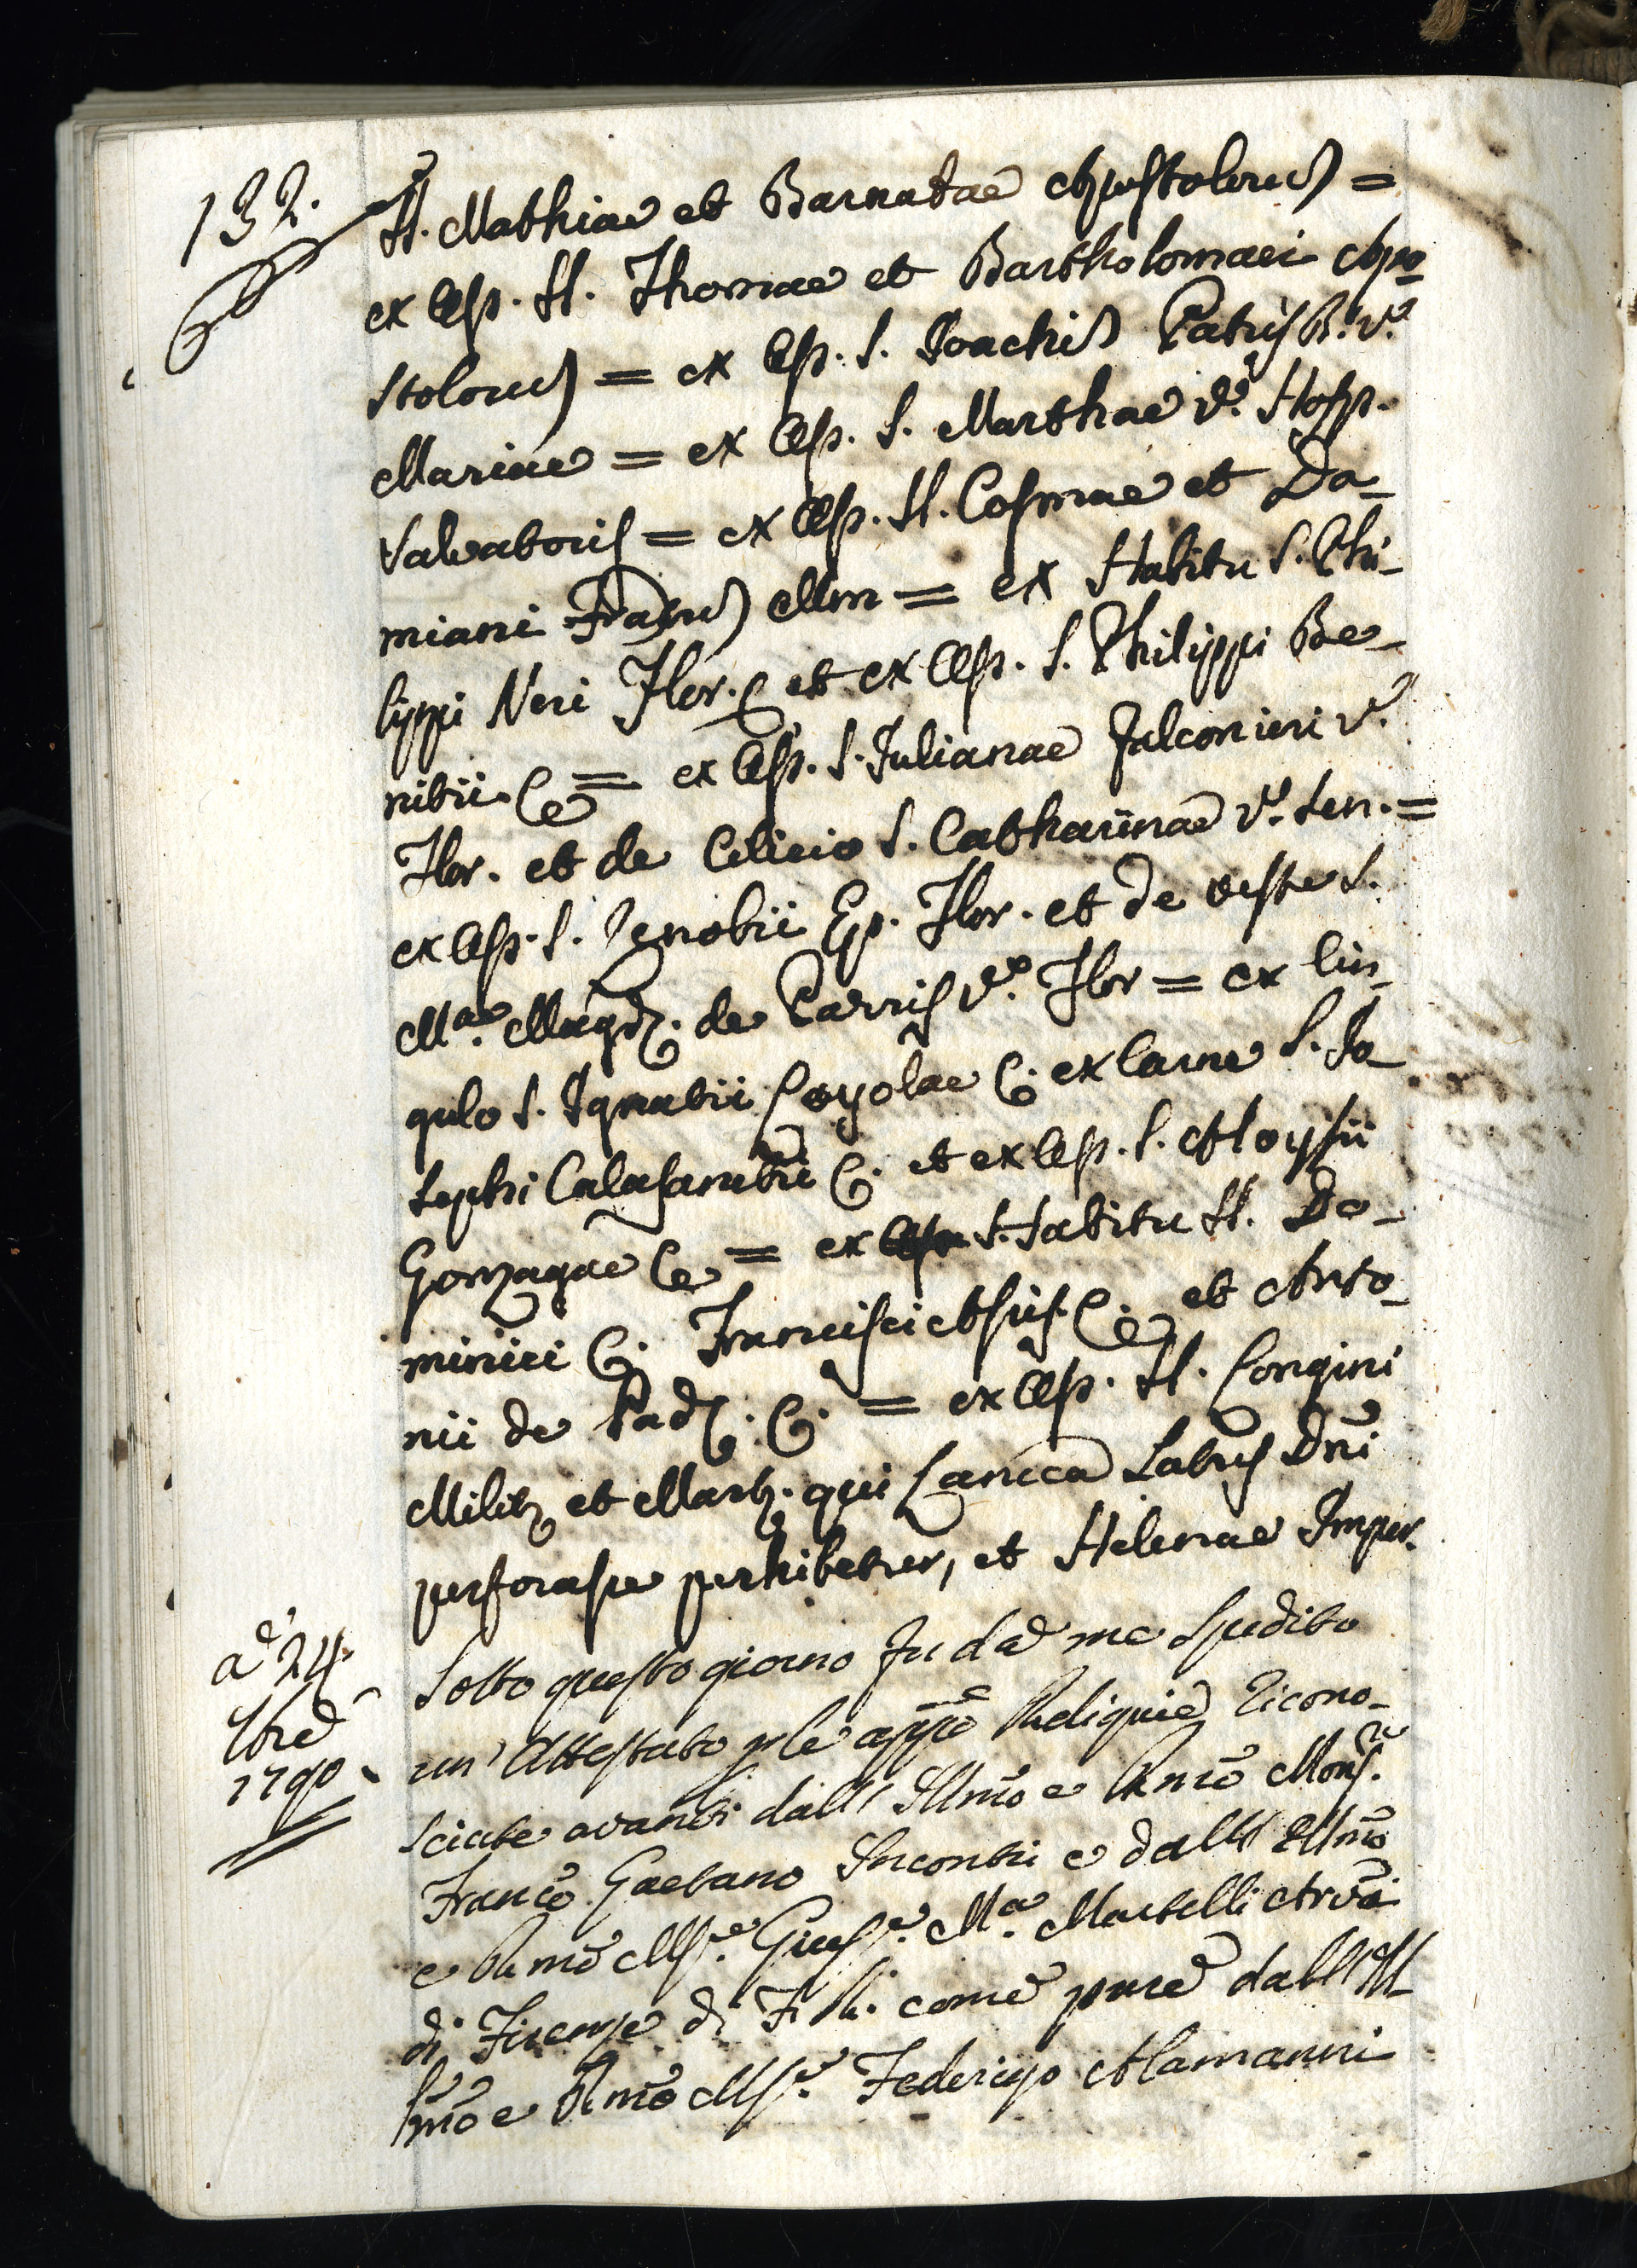 132.
SS. Mathiae et Barnabae Apostolorũ =
ex Oss. SS. Thomae et Bartholomaei Apo-
stolorũ = ex Oss. S. Joachĩ Patris B. V.
Mariae = ex Oss. S. Marthae V. Hosp.
Salvatoris = ex Oss. SS. Cosmae et Da-
miani Fratrũ Mm = ex Habitu S. Phi-
lippi Neri Flor. C. et ex Oss. S. Philippi Be-
nitii C. = ex Oss. S. Julianae Falconieri V.
Flor. et de Cilicio S. Catharinae V. Sen. =
ex Oss. S. Zenobii Ep. Flor. et de veste S.
Mae. Magd. de Pazzis V. Flor = ex Cin-
gulo S. Ignatii Loyolae C. ex Carne S. Jo
sephi Calasanctii C. et ex Oss. S. Aloysii
Gonzagae C. = ex Habitu SS. Do-
minici C. Francisci Assis. C. et Anto-
nii de Pad. C. = ex Oss. SS. Longini
Milit. et Mart. qui Lancea Latus Dñi
perforasse perhibetur, et Helenae Imper.
a 24
1790
Sotto questo giorno fu da me spedito
un' Attestato p le appe Reliquie ricono-
sciute avanti dall' Illmo e Rmo Mons.re
Franco Gaetano Incontri e dall' Illmo
e Rmo Msr. Giuse. Ma. Martelli Arvo
di Firenze di F. R. come pure dall' Ill
mo e Rmo Msr. Federigo Alamanni